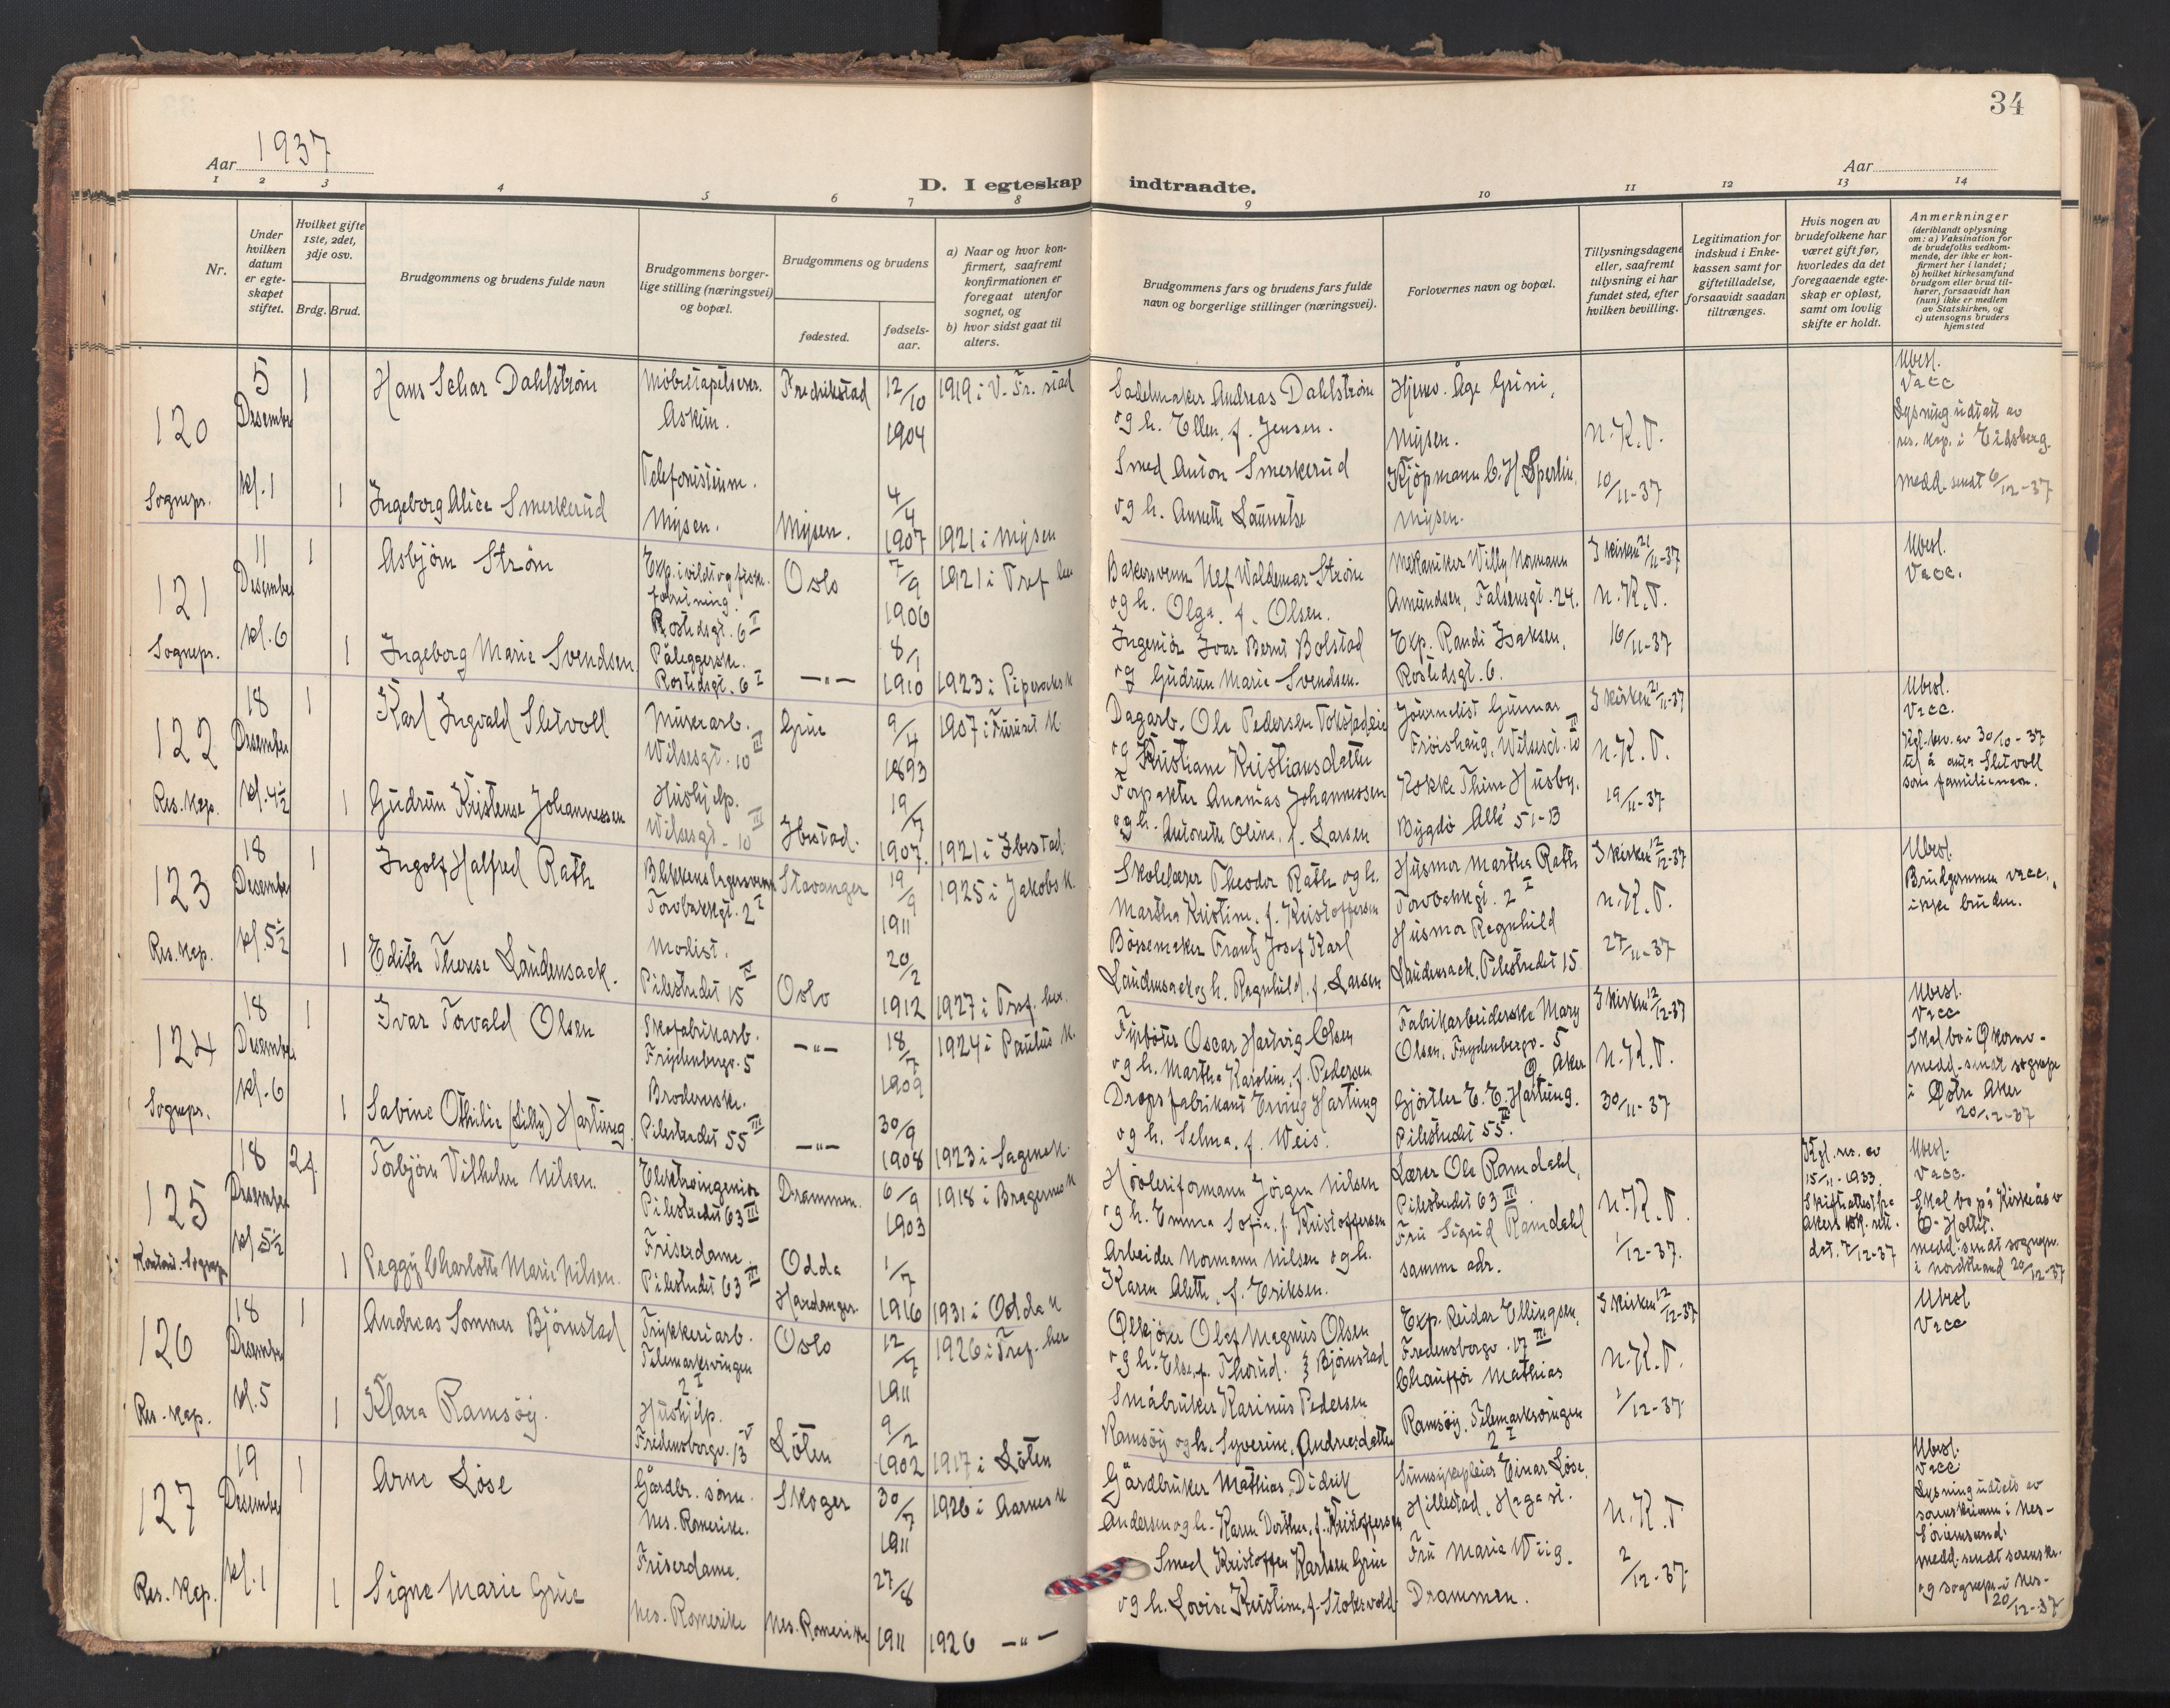 34
Aar 1937
Aar
D. I egteskap indtraadte.
1 2 3 4 5 6 7 8 9 10 11 12 13 14
Nr.
Under hvilken datum er egteskapet stiftet.
Hvilket gifte 1ste, 2det, 3dje osv.
Brdg. Brud.
Brudgommens og brudens fulde navn
Brudgommens borgerlige stilling (næringsvei) og bopæl.
Brudgommens og brudens
fødested.
fødselsaar.
a) Naar og hvor konfirmert, saafremt konfirmationen er foregaat utenfor sognet, og
b) hvor sidst gaat til alters.
Brudgommens fars og brudens fars fulde navn og borgerlige stillinger (næringsvei).
Forlovernes navn og bopæl.
Tillysningsdagene eller, saafremt tillysning ei har fundet sted, efter hvilken bevilling.
Legitimation for indskud i Enkekassen samt for giftetilladelse, forsaavidt saadan tiltrænges.
Hvis nogen av brudefolkene har været gift før, hvorledes da det foregaaende egteskap er opløst, samt om lovlig skifte er holdt.
Anmerkninger (deriblandt oplysning om: a) Vaksination for de brudefolks vedkommende, der ikke er konfirmert her i landet; b) hvilket kirkesamfund brudgom eller brud tilhører, forsaavidt han (hun) ikke er medlem av Statskirken, og c) utensogns bruders hjemsted
120 Sognepr.
5 Desember kl. 1
1 Hans Dahlstrøm
Askim.
Fredrikstad 12/10 1904
1919 i V. Fr. stad
Sadelmaker Andreas Dahlstrøm
og h. Ellen, f. Jensen.
Hjemv. Åge Grini,
Mysen.
N.K.T.
10/11-37
Ubesl.
Vacc
Lysning udstatt av
res. kap. i Eidsberg.
Medd. sendt 6/12-37
1 Ingeborg Alice Smerkerud
Telefonistinne.
Mysen.
Mysen. 4/4 1907
1921 i Mysen
Smed Anton Smerkerud
og h. Annette
Kjøpmann C. H. Sperlin,
Mysen.
121 Sognepr.
11 Desember kl. 6
1 Asbjørn Strøm
Exp. i vildt og fiskeforretning.
Rostedsgt. 6 I
Oslo 7/9 1906
1921 i Tref. her
Bakersvenn Ulf Waldemar Strøm
og h. Olga, f. Olsen.
Mekaniker Willy Normann
Amundsen, Falsensgt. 24.
I kirken 21/11-37
N.K.T.
16/11-37
Ubesl.
Vacc.
1 Ingeborg Marie Svendsen
Påleggerske.
Rostedsgt. 6 I
—"— 8/1 1910
1923 i Piperviks k
Ingeniør Ivar Bernt Bolstad
og Gudrun Marie Svendsen.
Exp. Randi Isaksen,
Rostedsgt. 6.
122 Res. kap.
18 Desember kl. 4½
1 Karl Ingvald Sletvoll
Murerarb.
Wilsesgt. 10 III
Grue 9/4 1893
1907 i Furuset k.
Dagarb. Ole Pedersen
og Kristiane Kristiansdatter
Journalist Gunnar
Frøishaug, Wilsesgt. 10 III
I kirken 21/11-37
N.K.T.
19/11-37
Ubesl.
Vacc.
Kgl. bev. av 30/10-37
til å anta Sletvoll
som familienavn.
1 Gudrun Kristense Johannessen
Hushjelp.
Wilsesgt. 10 III
Ibestad. 19/7 1907.
1921 i Ibestad.
Forpakter Ananias Johannessen
og h. Antonette Oline, f. Larsen
Kokke Thine Husby.
Bygdø Allé 51-13
123 Res. kap.
18 Desember kl. 5½
1 Ingolf Halfred Rath
Blikkenslagersvenn
Torvbakkgt. 2 I
Stavanger 19/9 1911
1925 i Jakobs k.
Skolelærer Theodor Rath og h.
Martha Kristine, f. Kristoffersen
Husmor Martha Rath
Torvbakkgt. 2 I
I kirken 12/12-37
N.K.T.
27/11-37
Ubesl.
Brudgommen vacc.,
ikke bruden.
1 Edith Therese Laudensack.
Modist.
Pilestredet 15
Oslo 20/2 1912
1927 i Tref. her.
Bøssemaker Frantz Josef Karl
Laudensack og h. Ragnhild, f. Larsen
Husmor Ragnhild
Laudensack, Pilestredet 15
124 Sognepr.
18 Desember kl. 6
1 Ivar Torvald Olsen
Skofabrikarb.
Frydenbergv. 5
—"— 18/7 1909
1924 i Paulus k.
Fyrbøter Oscar Hartvig Olsen
og h. Martha Karoline, f. Pedersen
Fabrikarbeiderske Mary
Olsen, Frydenbergv. 5
Ø. Aker
I kirken 12/12-37
N.K.T.
30/11-37
Ubesl.
Vacc
Skal bo i Økern-
medd. sendt sognepr
i Østre Aker
20/12-37
1 Sabine Othilie (Lilly) Hartung.
Brodererske.
Pilestredet 55 III
—"— 30/9 1908
1923 i Sagene k.
Dropsfabrikant Erving Hartung
og h. Selma, f. Weis.
Gjørtler E. E. Hartung.
Pilestredet 55 III
125
18 Desember kl 5½
2. Torbjørn Vilhelm Nilsen.
Elektroingeniør
Pilestredet 63 III
Drammen. 6/9 1903
1918 i Bragernes k
Høvleriformann Jørgen Nilsen
og h. Emma Sofie, f. Kristoffersen
Lærer Ole Ramdahl,
Pilestredet 63 III
N.K.T.
1/12-37.
Kgl. res. av
15/11-1933.
Skifteattest fra
Akers
7/12-37
Ubesl.
Vacc.
Skal bo på Kirkeåsv
Holtet.
medd. sendt sognepr.
i Nordstrand 20/12-37
1 Peggy Charlotte Marie Nilsen.
Friserdame.
Pilestredet 63 III
Odda
Hardanger. 1/7 1916
1931 i Odda k
Arbeider Normann Nilsen og h.
Karen Alette, f. Eriksen.
Fru Sigrid Ramdahl
samme adr.
126 Res. kap.
18 Desember kl. 5
1 Andreas Sommer Bjørnstad
Trykkeriarb.
Telemarksvingen
2 I
Oslo 12/7 1911
1926 i Tref. her
Ølkjører Olaf Magnus Olsen
og h. Else, f. Thorud. Bjørnstad
Exp. Reidar Ellingsen,
Fredensborgv. 17 III
I kirken 12/12-37
N.K.T.
1/12-37
Ubesl
Vacc
1 Klara Ramsøy.
Hushjelp.
Fredensborgv. 13 V
Løten 9/2 1902
1917 i Løten
Småbruker Karinus Pedersen
Ramsøy og h. Syverine, Andreasdatter
Chauffør Mathias
Ramsøy, Telemarksvingen
2 I
127 Res. kap.
19 Desember kl. 1
1 Arne Løse
Gårdbr. sønn.
Nes. Romerike.
Skoger 30/7 1911
1926 i Aarnes k
Gårdbruker Mathias Didrik
Andersen og h. Karen Dorthea, f. Kristoffersen
Sinnsykepleier Einar Løse,
Hillestad, Haga st.
N.K.T
2/12-37.
Ubesl.
Vacc
Lysning udstedt av
sorenskriveren i Nes-
Sørumsand.
medd. sendt sorenskr.
og sognepr. i Nes-
20/12-37
1 Signe Marie Grue
Friserdame.
Nes. Romerike
Nes. Romerike 27/8 1911
1926 —"—
Smed Kristoffer Karlsen Grue
og h. Lovise Kristine, f.
Fru Marie Wiig.
Drammen.